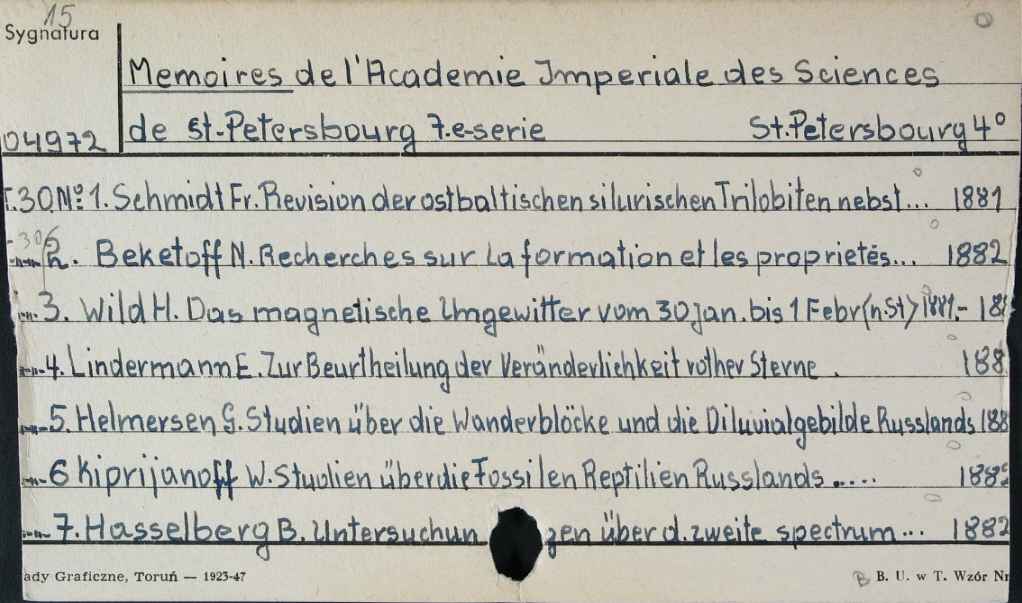 15
Sygnatura
Memoires de l'Academie Imperiale des Sciences
04972 de St.-Petersbourg 7.e-serie St.Petersbourg 4°
T.30.Nº 1. Schmidt Fr. Revision der ostbaltischen silurischen Trilobiten nebst... 1881
-30/2. Beketoff N. Recherches sur la formation et les proprietés... 1882
-„- 3. Wild H. Das magnetische Ungewitter vom 30 Jan. bis 1 Febr (n.St) 1881.- 188
-„- 4. Lindermann E. Zur Beurtheilung der Veränderlichkeit rother Sterne . 188
-„- 5. Helmersen G. Studien über die Wanderblöcke und die Diluvialgebilde Russlands 188
-„- 6 Kiprijanoff W. Studien über die Fossilen Reptilien Russlands ..... 188
-„- 7. Hasselberg B. Untersuchun gen über d. zweite spectrum... 1882
ady Graficzne, Toruń — 1923-47 B. U. w T. Wzór Nr